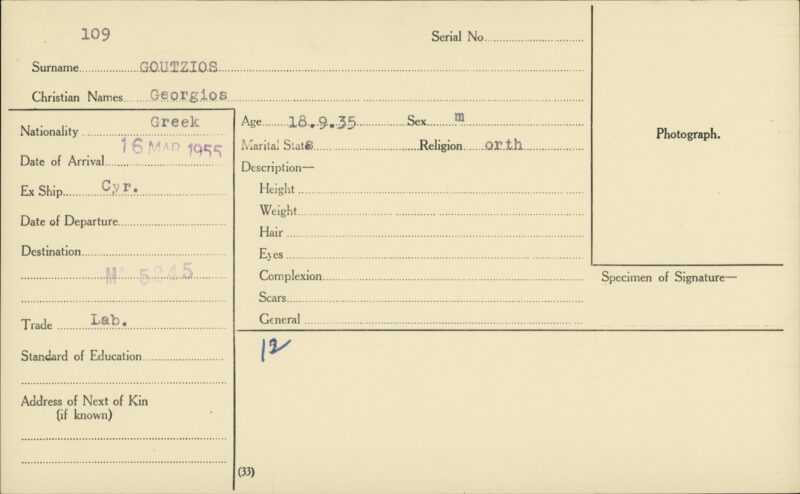 109
Serial No.
Surname GOUTZIOS
Christian Names Georgios
Nationality Greek
Date of Arrival 16 MAR 1955
Ex Ship Cyr.
Date of Departure
Destination
5245
Trade Lab.
Standard of Education
Address of Next of Kin
(if known)
Age 18.9.35 Sex m
Marital State Religion orth
Description—
Height
Weight
Hair
Eyes
Complexion
Scars
General
12
(33)
Photograph.
Specimen of Signature—